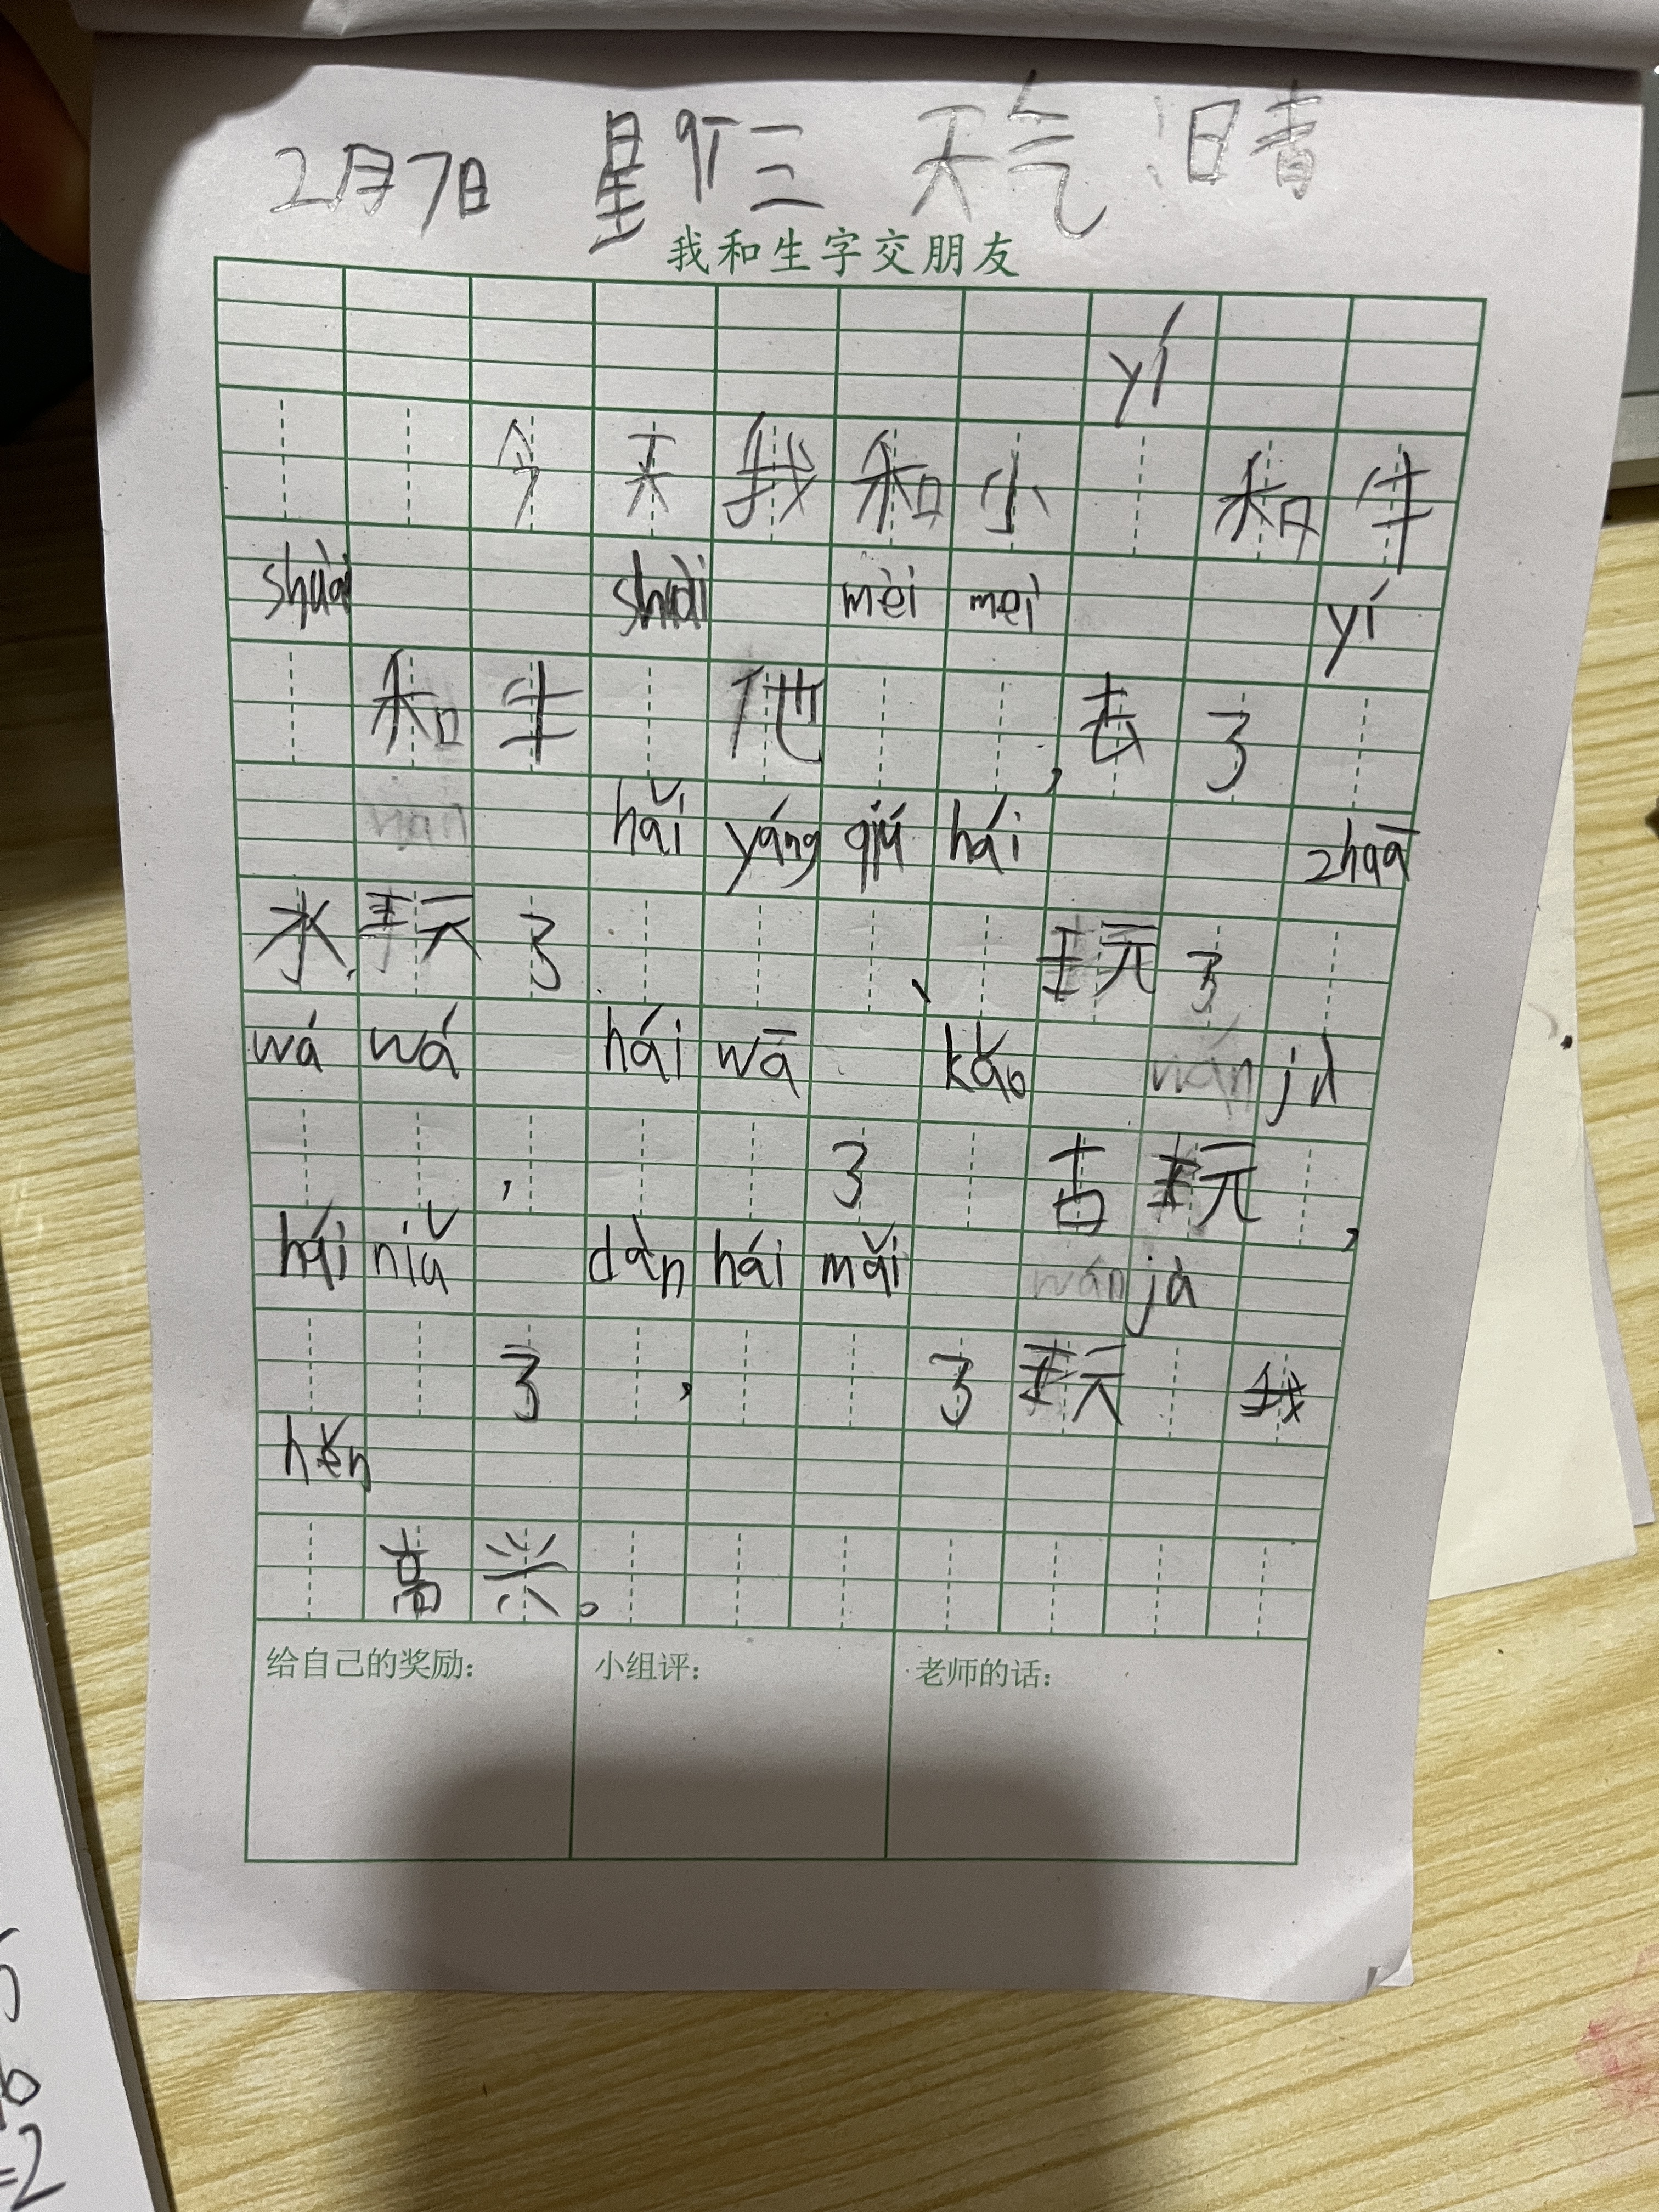 2月7日 星期三 天气 晴
我和生字交朋友
yí
今天我和小 和牛
shuài shuài mèi mei yí
和牛 他 ,去了
hǎi yáng qiú hái zhuā
水,玩了 、 玩了
wá wá hái wā kǎo jù
, 了 古玩 ,
hái niǔ dàn hái mǎi jù
了 , 了玩 我
hěn
高兴。
给自己的奖励:
小组评:
老师的话:
5
6
=2